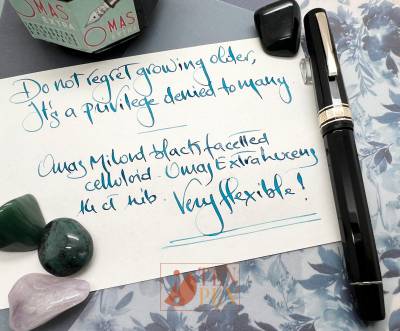 OMAS
OMAS
Do not regret growing older,
It's a privilege denied to many
Omas Milord black facetted
celluloid - Omas Extra
14 ct nib. Very flexible!
PEN